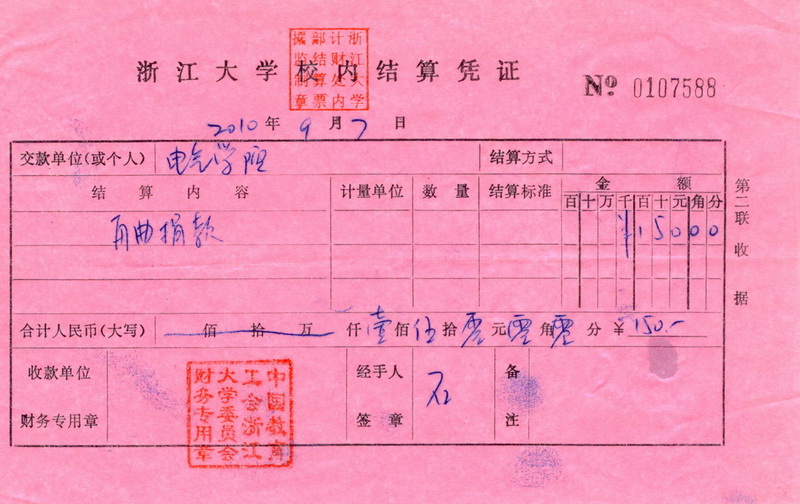 浙江大学校内结算凭证
浙江大学
计财处内
部结算票
据监制章
№ 0107588
2010年9月7日
交款单位(或个人) 电气学院 结算方式
结算内容 计量单位 数量 结算标准 金额
百十万千百十元角分
舟曲捐款 ¥15000
合计人民币(大写) 佰拾万仟壹佰伍拾零元零角零分 ¥150.-
收款单位
财务专用章
中国教育
工会浙江
大学委员会
财务专用章
经手人
签章
备
注
第二联收据